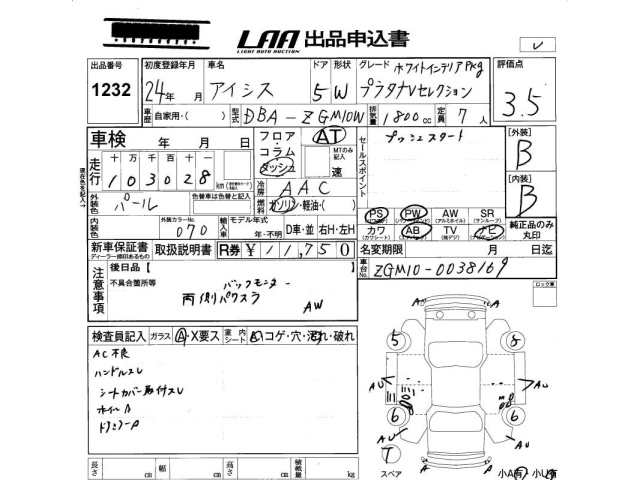 LAA 出品申込書
LIGHT AUTO AUCTION
出品番号 初度登録年月 車名 ドア 形状 グレード ホワイトインテリアPkg 評価点
1232 24年 月 アイシス 5 W プラタナVセレクション 3.5
車歴 自家用・( ) 型式 DBA-ZGM10W 排気量 1800cc 定員 7人
車検 年 月 日 フロア・コラム・ダッシュ AT MTのみ記入 速 セールスポイント プッシュスタート [外装] B
走行 十万千百十一 103028 km
冷房 AAC [内装] B
外装色 パール 色替車は色替と記入 燃料 ガソリン・軽油・( )
PS PW AW SR 純正品のみ丸印
カワ AB TV ナビ
(カワシート) (エアバッグ) (純正) (ナビ)
外装カラーNo. 070 輸入車 モデル年式 年・不明 D車・並 右H・左H
新車保証書 取扱説明書 R券 ¥11,750 名変期限 月 日迄
ディーラー捺印あるもの
車台No. ZGM10-0038169
注意事項 後日品【 】
不具合箇所等 バックモニター
両側パワスラ AW
ロック車
検査員記入 ガラス A・X要ス 室内シート コゲ・穴・汚れ・破れ
AC不良
ハンドルスレ
シートカバー取付スレ
ホイルA
ドアミラーA
5 8
AU AU
6 6
AU AU
T
スペア A A 小A有 小U有
長さ cm 幅 cm 高さ cm 積載量 kg